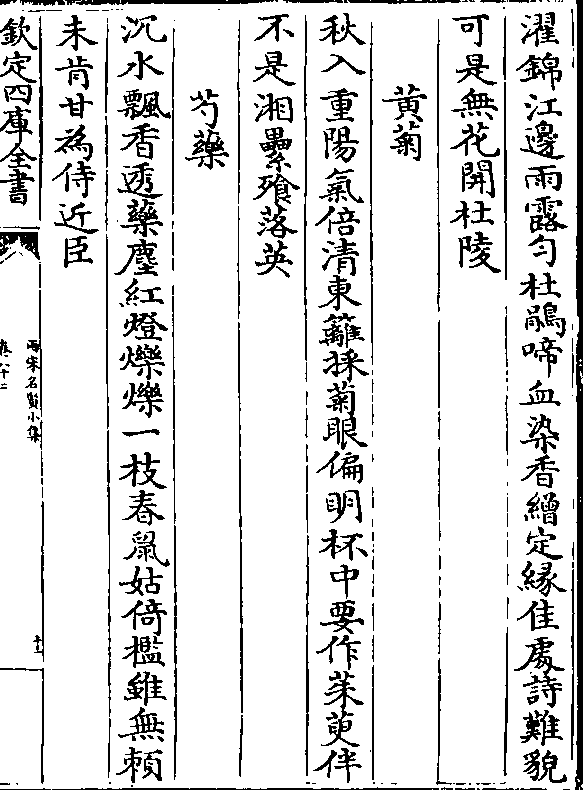 濯錦江邊雨露勻杜鵑啼血染香繒定縁佳處詩難貌
可是無花開杜陵
黄菊
秋入重陽氣倍清東籬採菊眼偏明杯中要作茱萸伴
不是湘纍飱落英
芍藥
沉水飄香透藥塵紅燈爍爍一枝春鼠姑倚檻雖無頼
未肯甘為侍近臣
欽定四庫全書
兩宋名賢小集